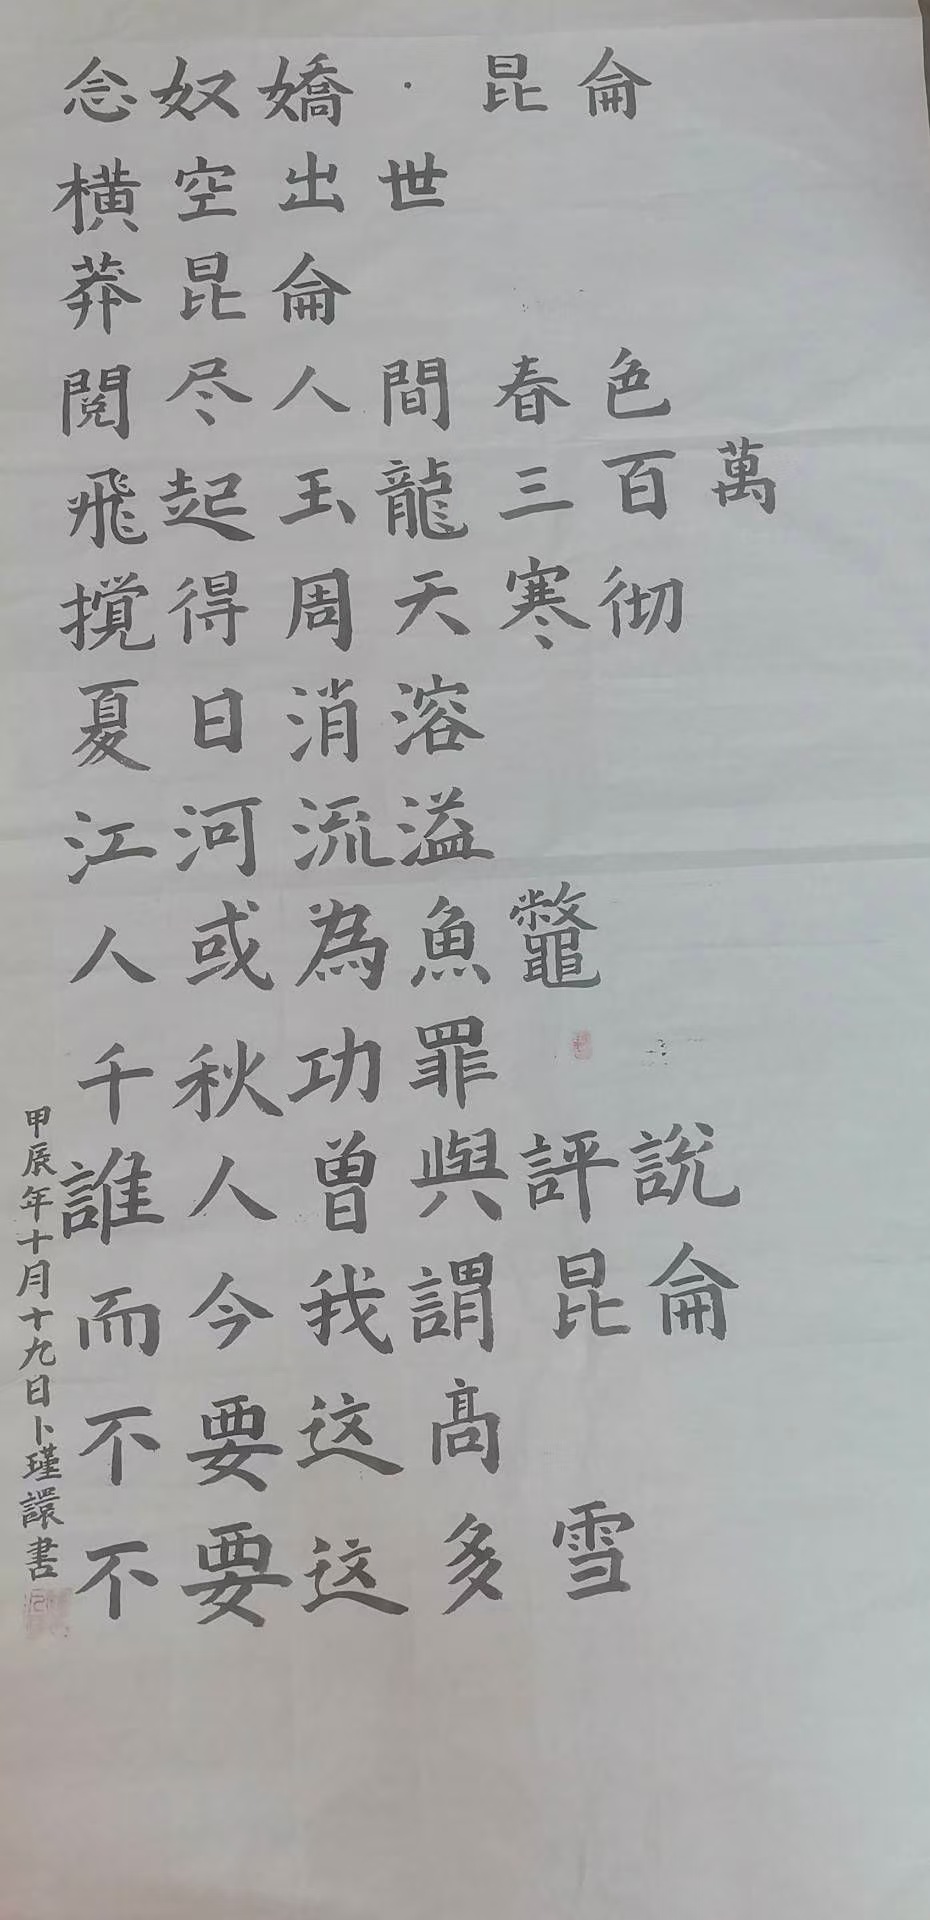 念奴嬌·昆侖
橫空出世
莽昆侖
閱尽人間春色
飛起玉龍三百萬
攪得周天寒彻
夏日消溶
江河流溢
人或為魚鼈
千秋功罪
誰人曾與評說
而今我謂昆侖
不要这高
不要这多雪
甲辰年十月十九日卜瑾譞書